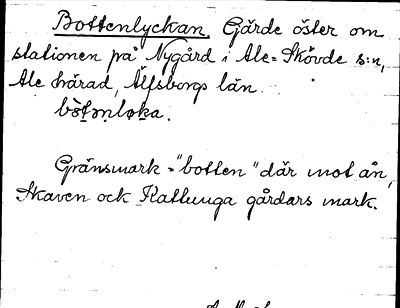 Bottenlyckan. Gärde öster om
stationen på Nygård i Ale-Skövde s:n,
Ale härad, Älfsborgs län.
Gränsmark - "botten" där mot ån,
Skaven ock Kattunga gårdars mark.